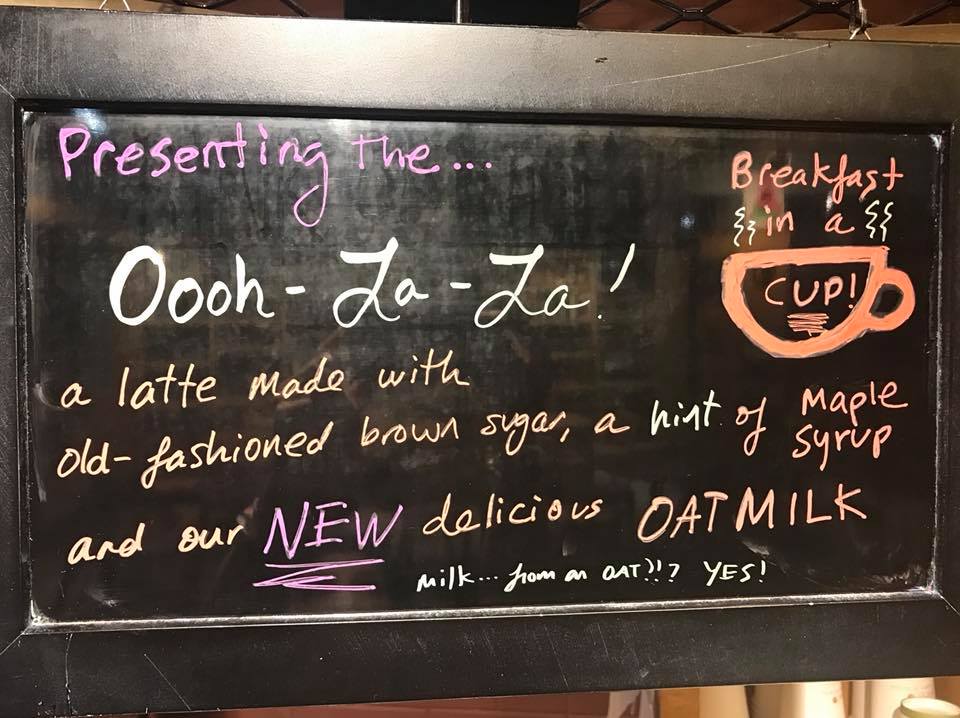 Presenting the...
Breakfast
in a
CUP!
Oooh-La-La!
a latte made with
old-fashioned brown sugar, a hint of Maple Syrup
and our NEW delicious OATMILK
Milk... from an OAT?!? YES!